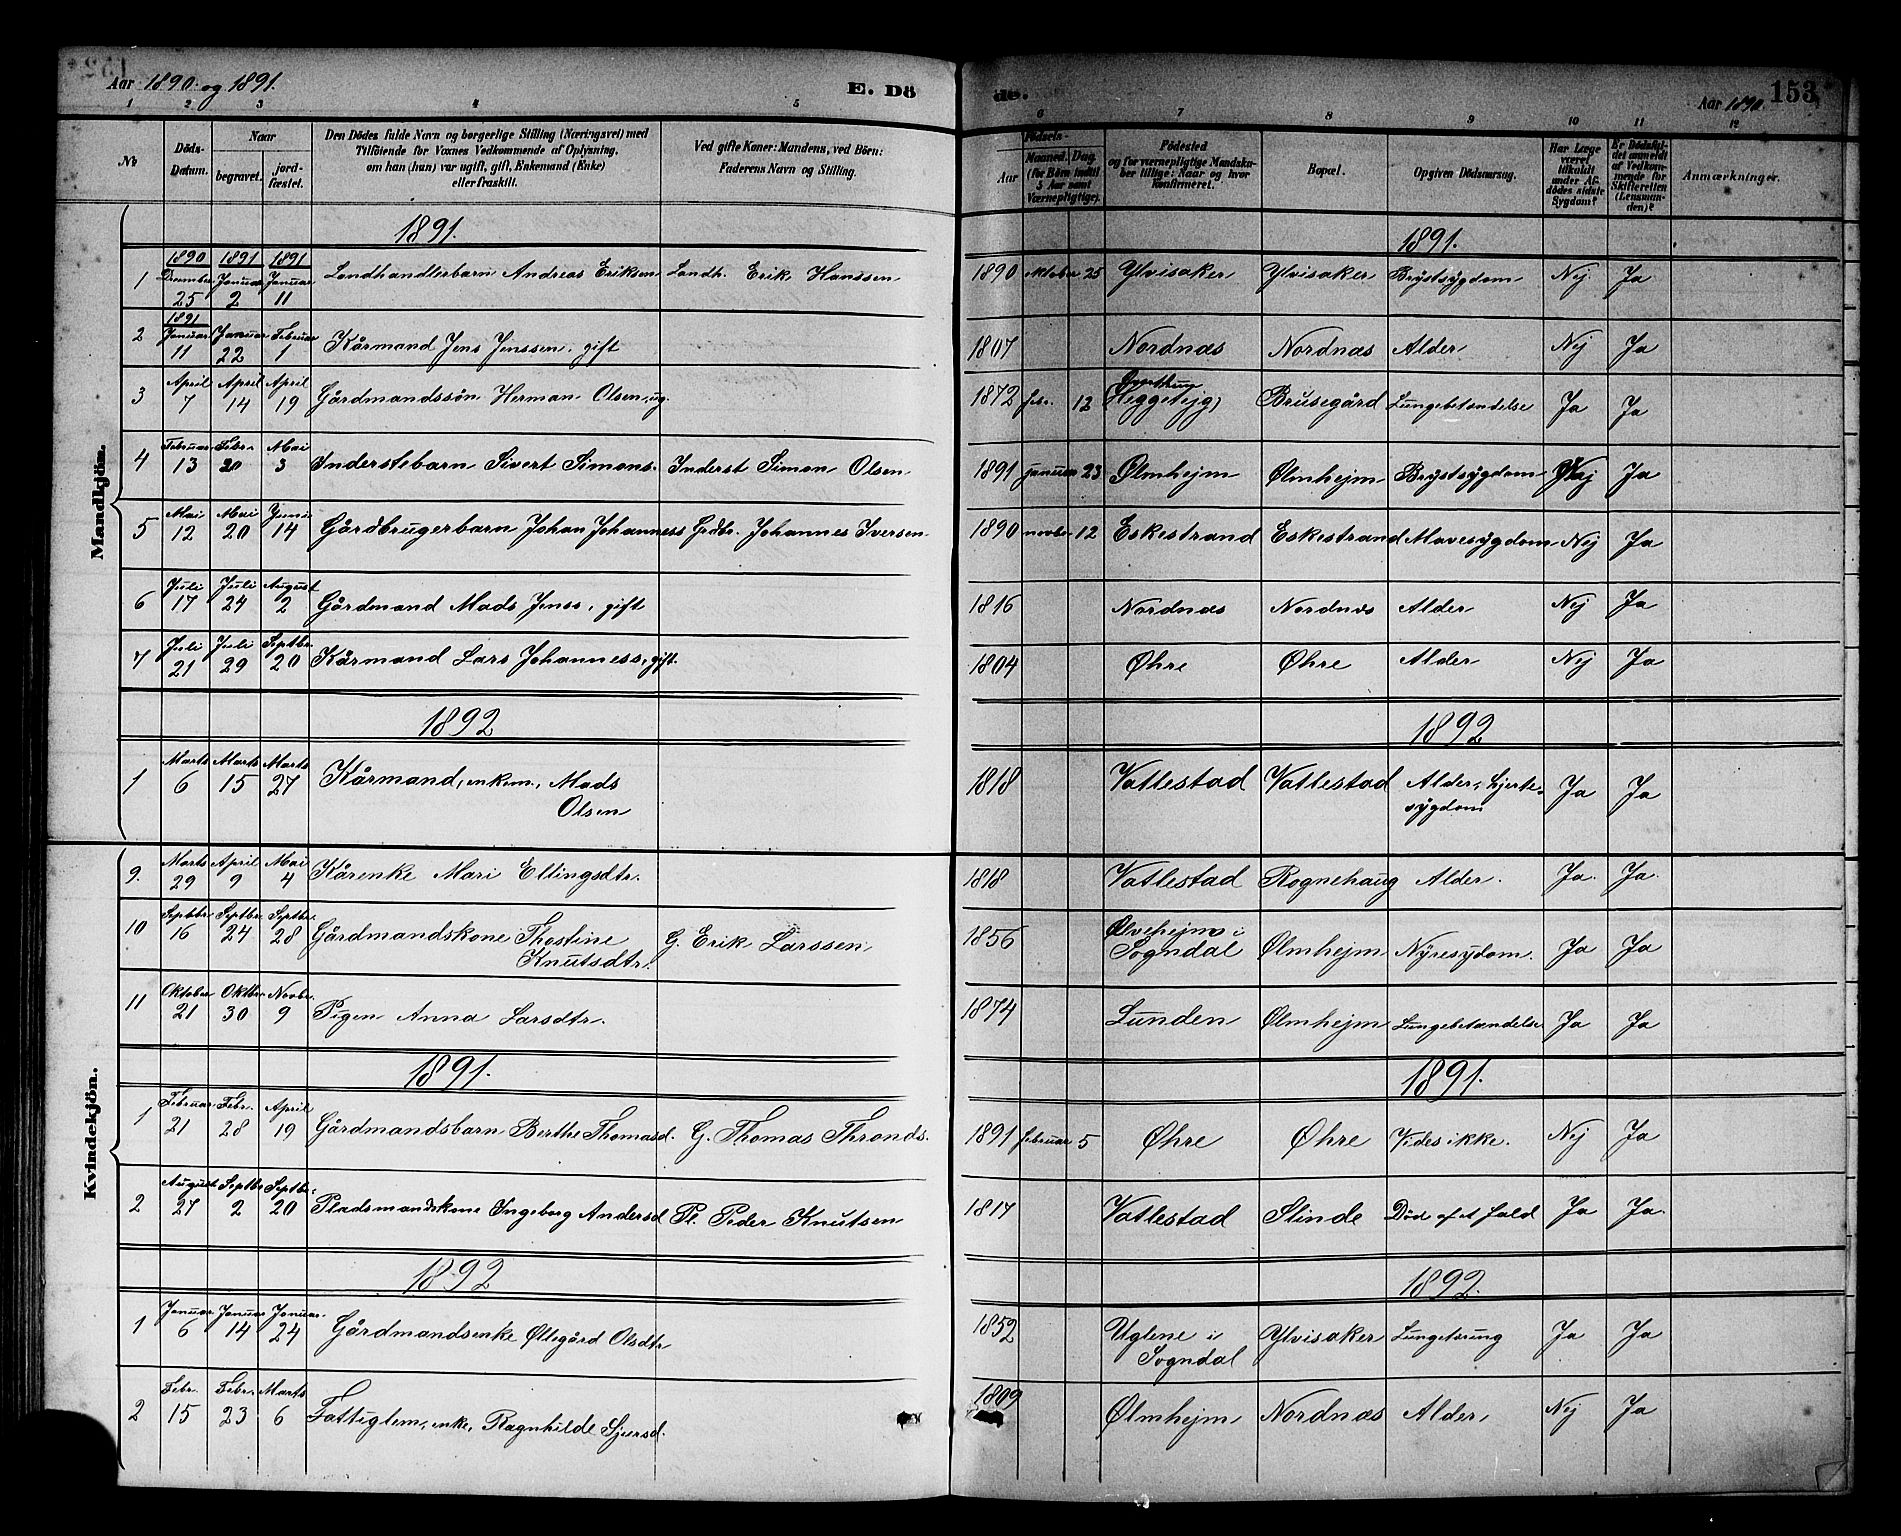 Aar 1890 og 1891.
E. Dö
de.
Aar 1890.
153
1 2 3 4 5 6 7 8 9 10 11 12
No
Döds-Datum.
Naar
begravet.
jord-fæstet.
Den Dödes fulde Navn og borgerlige Stilling (Næringsvei) med
Tilföiende for Voxnes Vedkommende af Oplysning,
om han (hun) var ugift, gift, Enkemand (Enke)
eller fraskilt.
Ved gifte Koner: Mandens, ved Börn:
Faderens Navn og Stilling.
Födsels-
Aar
Maaned. Dag.
(for Börn indtil
5 Aar samt
Værnepligtige).
Födested
og for værnepligtige Mandska-
ber tillige: Naar og hvor
konfirmeret.
Bopæl.
Opgiven Dödsaarsag.
Har Læge
været
tilkaldt
under Af-
dödes sidste
Sygdom?
Er Dödsfal-
det anmeldt
af Vedkom-
mende for
Skifteretten
(Lensman-
den)?
Anmærkninger.
Mandkjön.
1891. 1891.
1 1890 December 25 1891 Januar 2 1891 Januar 11 Landhandlerbarn Andreas Eriksen Landh. Erik Hanssen 1890 oktober 25 Ylvisaker Ylvisaker Brystsygdom Nej Ja
2 1891 Januar 11 Januar 22 Februar 1 Kårmand Jens Jenssen, gift 1807 Nordnæs Nordnæs Alder Nej Ja
3 April 7 April 14 April 19 Gårdmandssön Herman Olsen, ug. 1872 febr. 12 Heggetejg Brusegård Lungebetændelse Ja Ja
4 Februar 13 Febr. 20 Mai 3 Inderstebarn Sivert Simons. Inderst Simon Olsen 1891 januar 23 Ølmhejm Ølmhejm Brystsygdom Nej Ja
5 Mai 12 Mai 20 Juni 14 Gårdbrugerbarn Johan Johanness Grdbr. Johannes Iversen 1890 novbr 12 Eskestrand Eskestrand Mavesygdom Nej Ja
6 Juli 17 Juli 24 August 2 Gårdmand Mads Jenss, gift 1816 Nordnæs Nordnæs Alder Nej Ja
7 Juli 21 Juli 29 Septbr. 20 Kårmand Lars Johanness, gift. 1804 Øhre Øhre Alder Nej Ja
1892 1892
1 Marts 6 Marts 15 Marts 27 Kårmand, enkem, Mads Olsen 1818 Vatlestad Vatlestad Alder, hjertesygdom Ja Ja
Kvindekjön.
9. Marts 29 April 9 Mai 4 Kårenke Mari Ellingsdtr. 1818 Vatlestad Rognehaug Alder. Ja. Ja.
10 Septbr 16 Septbr. 24 Septbr. 28 Gårdmandskone Thostine Knutsdtr. G. Erik Larssen 1856 Ølvehejms i Sogndal Ølmhejm Nyresydom. Ja Ja
11 Oktober 21 Oktbr 30 Novbr. 9 Pigen Anna Larsdtr. 1874 Lunden Ølmhejm Lungebetændelse Ja Ja
1891. 1891.
1 Februar 21 Febr. 28 April 19 Gårdmandsbarn Berthe Thomasd. G. Thomas Thronds. 1891 februar 5 Øhre Øhre Vides ikke. Nej Ja
2 August 27 Septbr 2 Septbr. 20 Pladsmandskone Ingeborg Andersd Pl. Peder Knutsen 1817 Vatlestad Slinde Död af et fald Ja Ja.
1892 1892.
1 Januar 6 Januar 14 Januar 24 Gårdmandsenke Øllegård Olsdtr 1852 Uglene i Sogndal Ylvisaker Lungetæring Ja Ja
2 Febr. 15 Febr. 23 Marts 6 Fattiglem, enke, Ragnhilde Sjursd. 1809 Ølmhejm Nordnæs Alder, Nej Ja